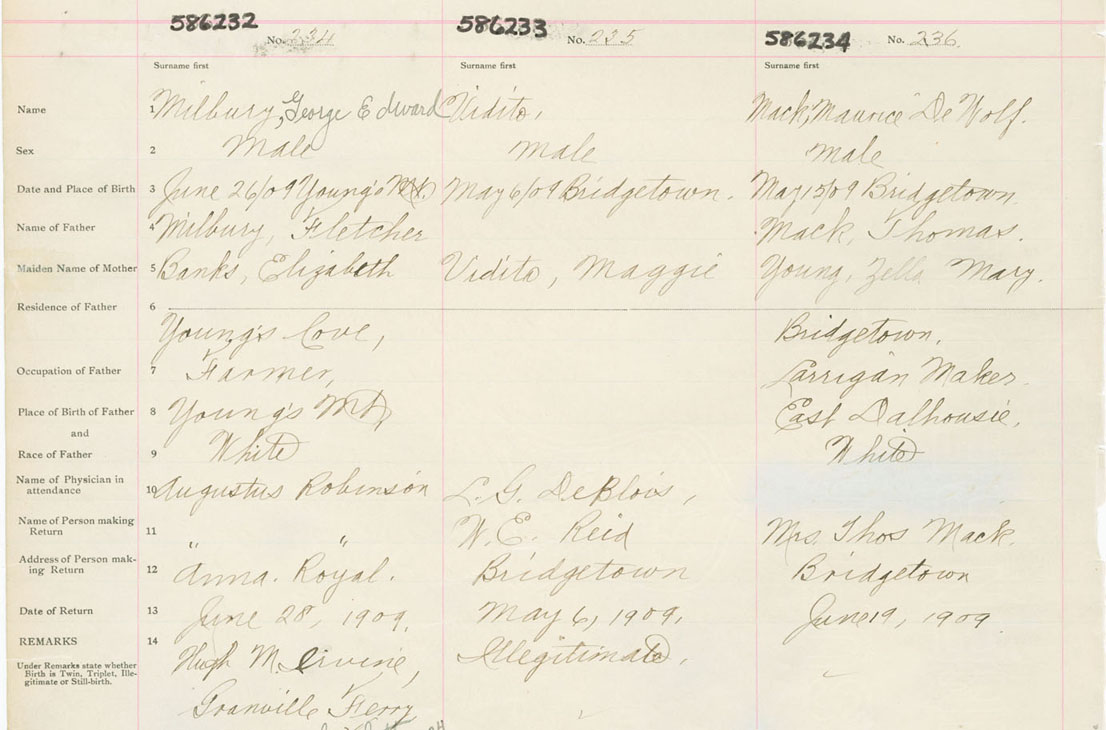 586232 No. 234 586233 No. 235 586234 No. 236.
Surname first Surname first Surname first
Name 1 Milbury, George Edward Vidito, Mack, Maurice De Wolf.
Sex 2 Male male male
Date and Place of Birth 3 June 26/09 Young's Mt. May 6/09 Bridgetown. May 15/09 Bridgetown.
Name of Father 4 Milbury, Fletcher Mack, Thomas.
Maiden Name of Mother 5 Banks, Elizabeth Vidito, Maggie Young, Zella Mary.
Residence of Father 6
Young's Cove, Bridgetown,
Occupation of Father 7 Farmer, Larrigan Maker.
Place of Birth of Father 8 Young's Mt, East Dalhousie,
and
Race of Father 9 White White
Name of Physician in
attendance 10 Augustus Robinson L. G. DeBlois,
Name of Person making
Return 11 " " W. E. Reid Mrs. Thos Mack.
Address of Person mak-
ing Return 12 Anna. Royal. Bridgetown Bridgetown
Date of Return 13 June 28, 1909. May 6, 1909. June 19, 1909
REMARKS 14 Hugh M. Irvine, Illegitimate,
Under Remarks state whether
Birth is Twin, Triplet, Ille-
gitimate or Still-birth.
Granville Ferry